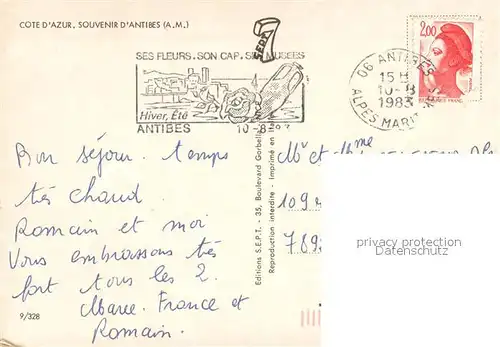 COTE D'AZUR, SOUVENIR D'ANTIBES (A.M.)
SEPT
SES FLEURS. SON CAP. SES MUSEES
Hiver, Eté
ANTIBES
10-8
2,00
06 ANTIBES
15 H
10-8
1983
ALPES MARIT
Bon séjour. temps
très chaud
Romain et moi
Vous embrassons très
fort tous les 2.
Marie. France et
Romain.
9/328
Editions S.E.P.T. - 35, Boulevard
Reproduction interdite - Imprimé en
Mr et Mme
109
789
privacy protection
Datenschutz